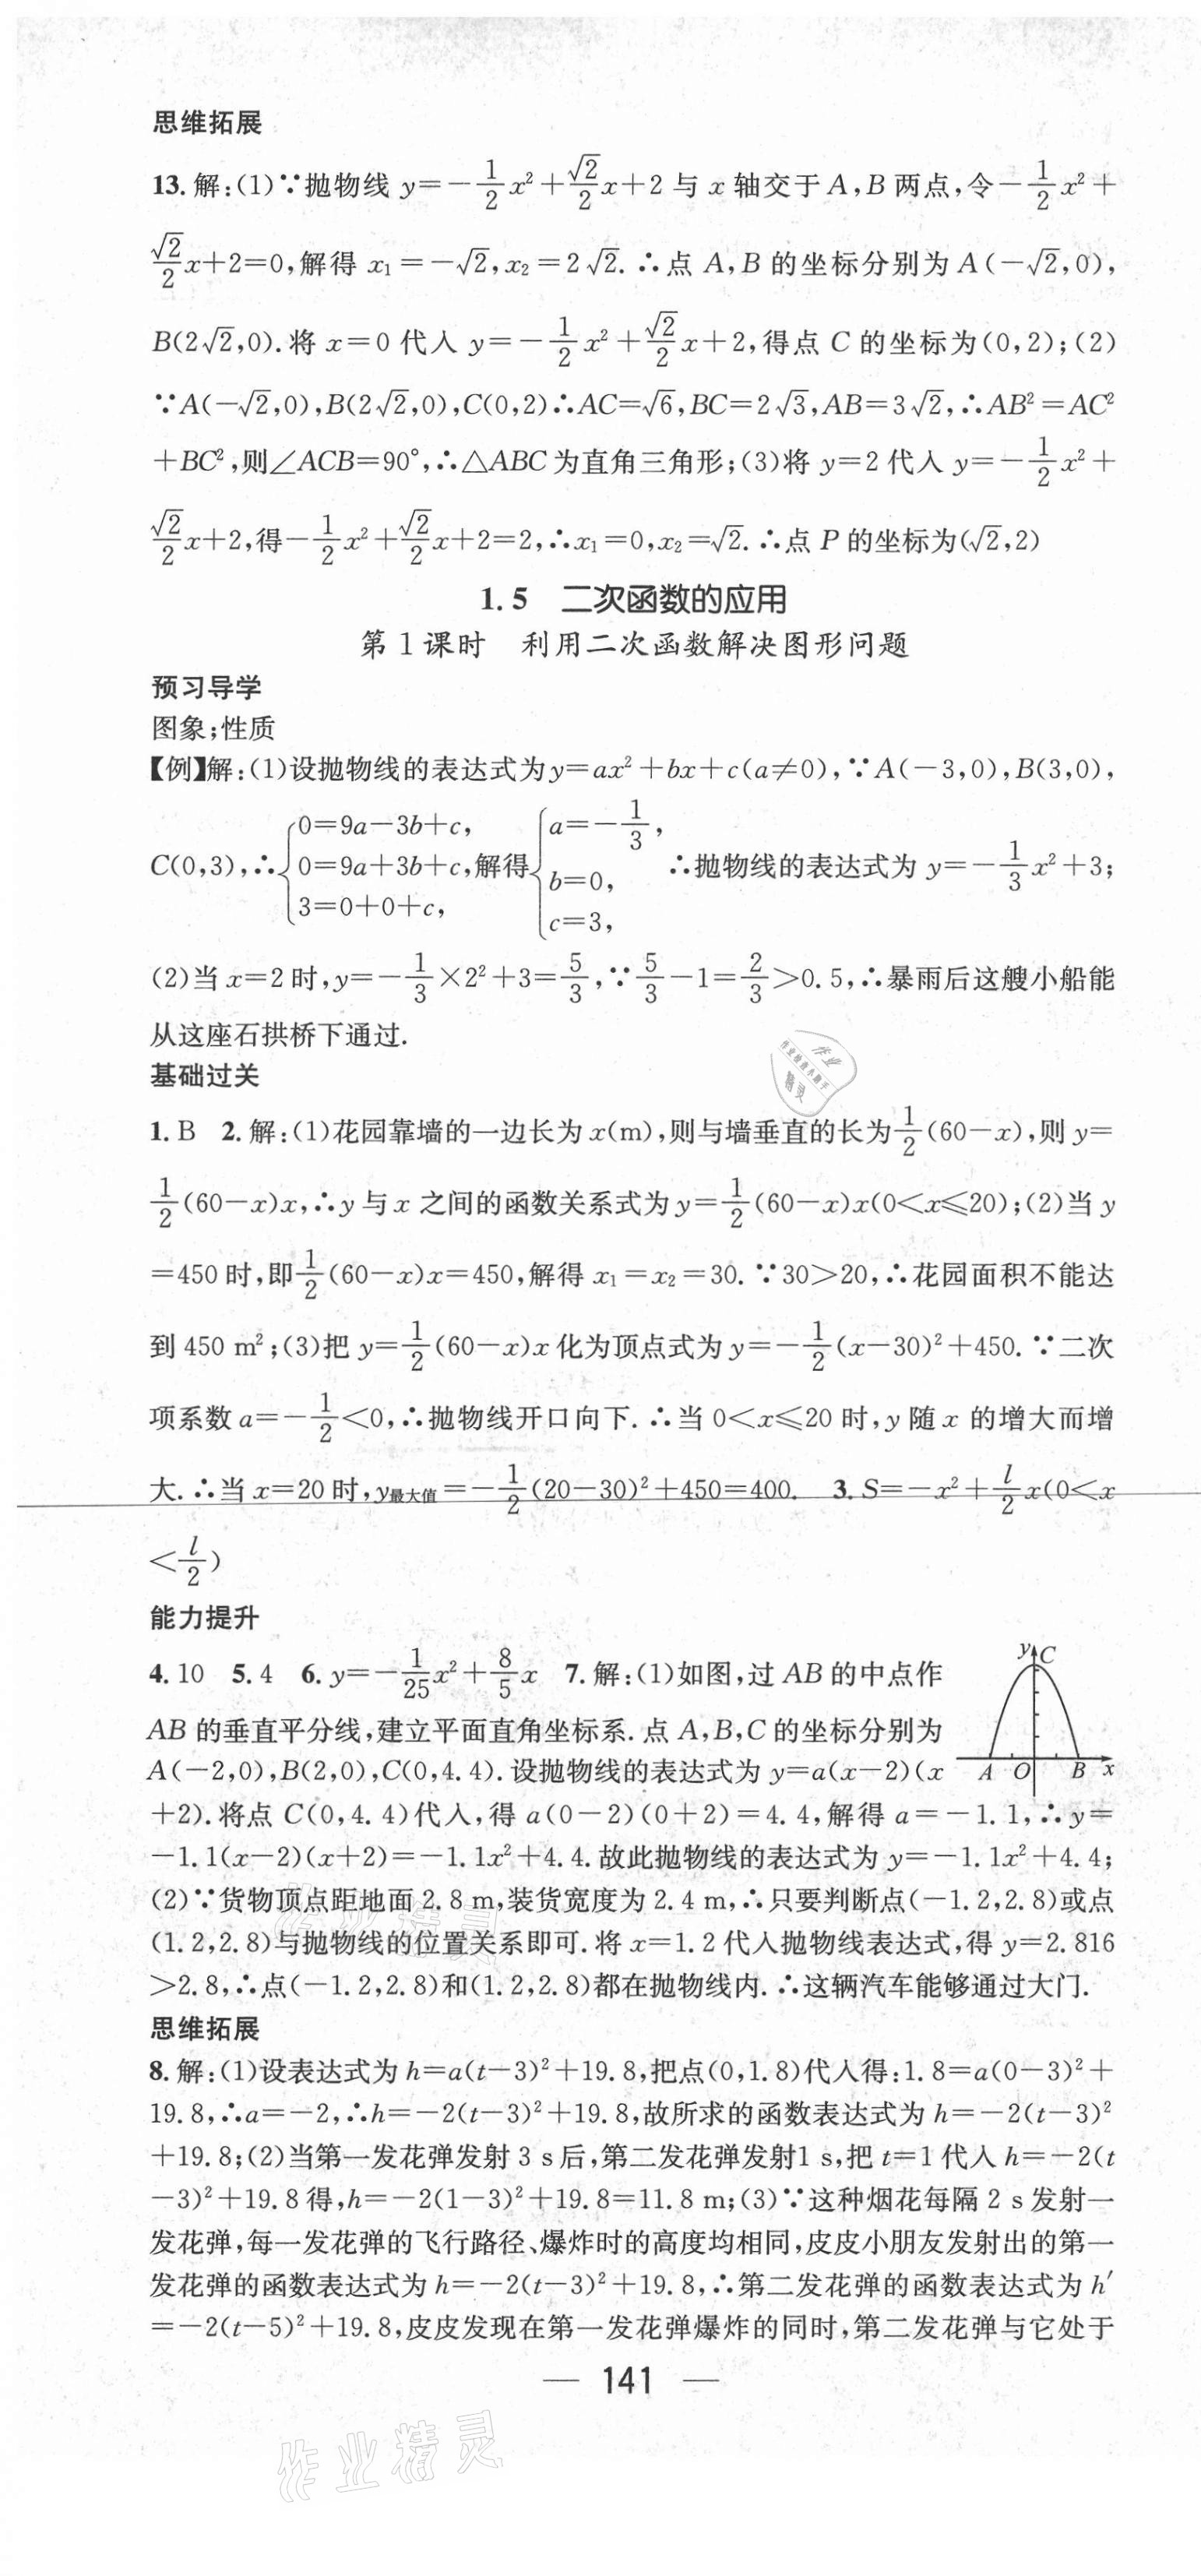 思维拓展
13.解:(1)∵抛物线 y=-1/2x²+√2/2x+2与 x 轴交于A,B 两点,令-1/2x²+
√2/2x+2=0,解得 x₁=-√2,x₂=2√2.∴点 A,B 的坐标分别为A(-√2,0),
B(2√2,0).将 x=0 代入 y=-1/2x²+√2/2x+2,得点 C 的坐标为(0,2);(2)
∵A(-√2,0),B(2√2,0),C(0,2)∴AC=√6,BC=2√3,AB=3√2,∴AB²=AC²
+BC²,则∠ACB=90°,∴△ABC为直角三角形;(3)将 y=2 代入 y=-1/2x²+
√2/2x+2,得-1/2x²+√2/2x+2=2,∴x₁=0,x₂=√2.∴点 P 的坐标为(√2,2)
1.5 二次函数的应用
第1课时 利用二次函数解决图形问题
预习导学
图象;性质
【例】解:(1)设抛物线的表达式为y=ax²+bx+c(a≠0),∵A(-3,0),B(3,0),
C(0,3),∴{0=9a-3b+c, 0=9a+3b+c, 3=0+0+c, 解得{a=-1/3, b=0, c=3, ∴抛物线的表达式为 y=-1/3x²+3;
(2)当 x=2时,y=-1/3×2²+3=5/3,∵5/3-1=2/3>0.5,∴暴雨后这艘小船能
从这座石拱桥下通过.
基础过关
1.B 2.解:(1)花园靠墙的一边长为x(m),则与墙垂直的长为1/2(60-x),则y=
1/2(60-x)x,∴y与x之间的函数关系式为y=1/2(60-x)x(0<x≤20);(2)当y
=450时,即1/2(60-x)x=450,解得 x₁=x₂=30.∵30>20,∴花园面积不能达
到450 m²;(3)把 y=1/2(60-x)x化为顶点式为 y=-1/2(x-30)²+450.∵二次
项系数a=-1/2<0,∴抛物线开口向下.∴当 0<x≤20 时,y 随 x 的增大而增
大.∴当 x=20时,y最大值=-1/2(20-30)²+450=400. 3.S=-x²+l/2x(0<x
<l/2)
能力提升
4.10 5.4 6.y=-1/25x²+8/5x 7.解:(1)如图,过 AB 的中点作
AB 的垂直平分线,建立平面直角坐标系.点 A,B,C 的坐标分别为
A(-2,0),B(2,0),C(0,4.4).设抛物线的表达式为 y=a(x-2)(x
+2).将点 C(0,4.4)代入,得 a(0-2)(0+2)=4.4,解得 a=-1.1,∴y=
-1.1(x-2)(x+2)=-1.1x²+4.4.故此抛物线的表达式为 y=-1.1x²+4.4;
(2)∵货物顶点距地面2.8 m,装货宽度为2.4 m,∴只要判断点(-1.2,2.8)或点
(1.2,2.8)与抛物线的位置关系即可.将 x=1.2代入抛物线表达式,得 y=2.816
>2.8,∴点(-1.2,2.8)和(1.2,2.8)都在抛物线内.∴这辆汽车能够通过大门.
y
C
A
O
B
x
思维拓展
8.解:(1)设表达式为 h=a(t-3)²+19.8,把点(0,1.8)代入得:1.8=a(0-3)²+
19.8,∴a=-2,∴h=-2(t-3)²+19.8,故所求的函数表达式为 h=-2(t-3)²
+19.8;(2)当第一发花弹发射 3 s后,第二发花弹发射1 s,把 t=1 代入 h=-2(t
-3)²+19.8得,h=-2(1-3)²+19.8=11.8 m;(3)∵这种烟花每隔 2 s发射一
发花弹,每一发花弹的飞行路径、爆炸时的高度均相同,皮皮小朋友发射出的第一
发花弹的函数表达式为 h=-2(t-3)²+19.8,∴第二发花弹的函数表达式为 h′
=-2(t-5)²+19.8,皮皮发现在第一发花弹爆炸的同时,第二发花弹与它处于
— 141 —
作业精灵